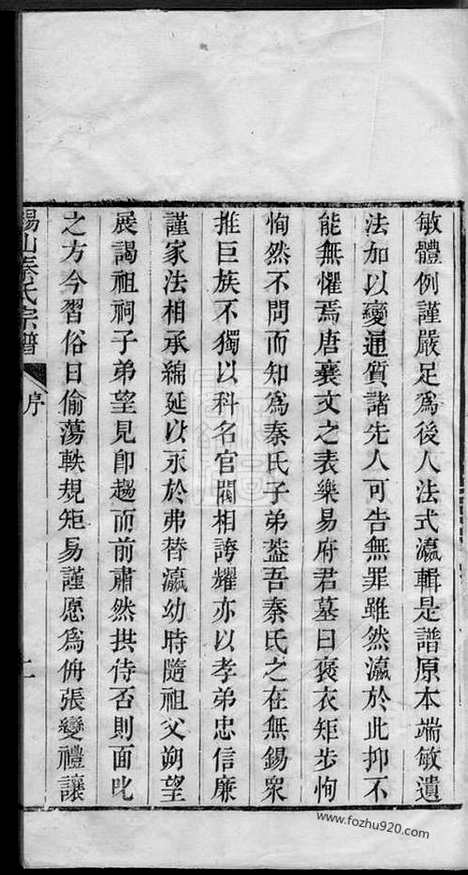 敏體例謹嚴足為後人法式瀛輯是譜原本端敏遺
法加以變通質諸先人可告無罪雖然瀛於此抑不
能無懼焉唐襄文之表樂易府君墓曰褒衣矩步恂
恂然不問而知為秦氏子弟葢吾秦氏之在無錫衆
推巨族不獨以科名官閥相誇耀亦以孝弟忠信廉
謹家法相承綿延以永於弗替瀛幼時隨祖父朔望
展謁祖祠子弟望見卽趨而前肅然拱侍否則面叱
之方今習俗日偷蕩軼規矩易謹愿為侜張變禮讓
錫山秦氏宗譜
序
www.fozhu920.com